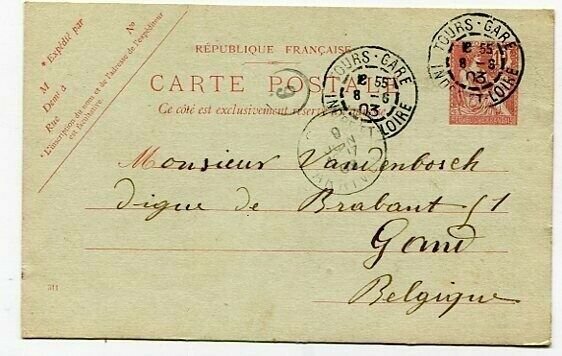 * Expédié par
No
M
Demt à
Rue
* L'inscription du nom et de l'adresse de l'expéditeur
est facultative.
RÉPUBLIQUE FRANÇAISE
CARTE POSTALE
Ce côté est exclusivement réservé
TOURS-GARE
12 55
8 -6
03
INDRE ET LOIRE
TOURS-GARE
55
8
03
LOIRE
6
Monsieur Vandenbosch
digue de Brabant 51
Gand
Belgique
311